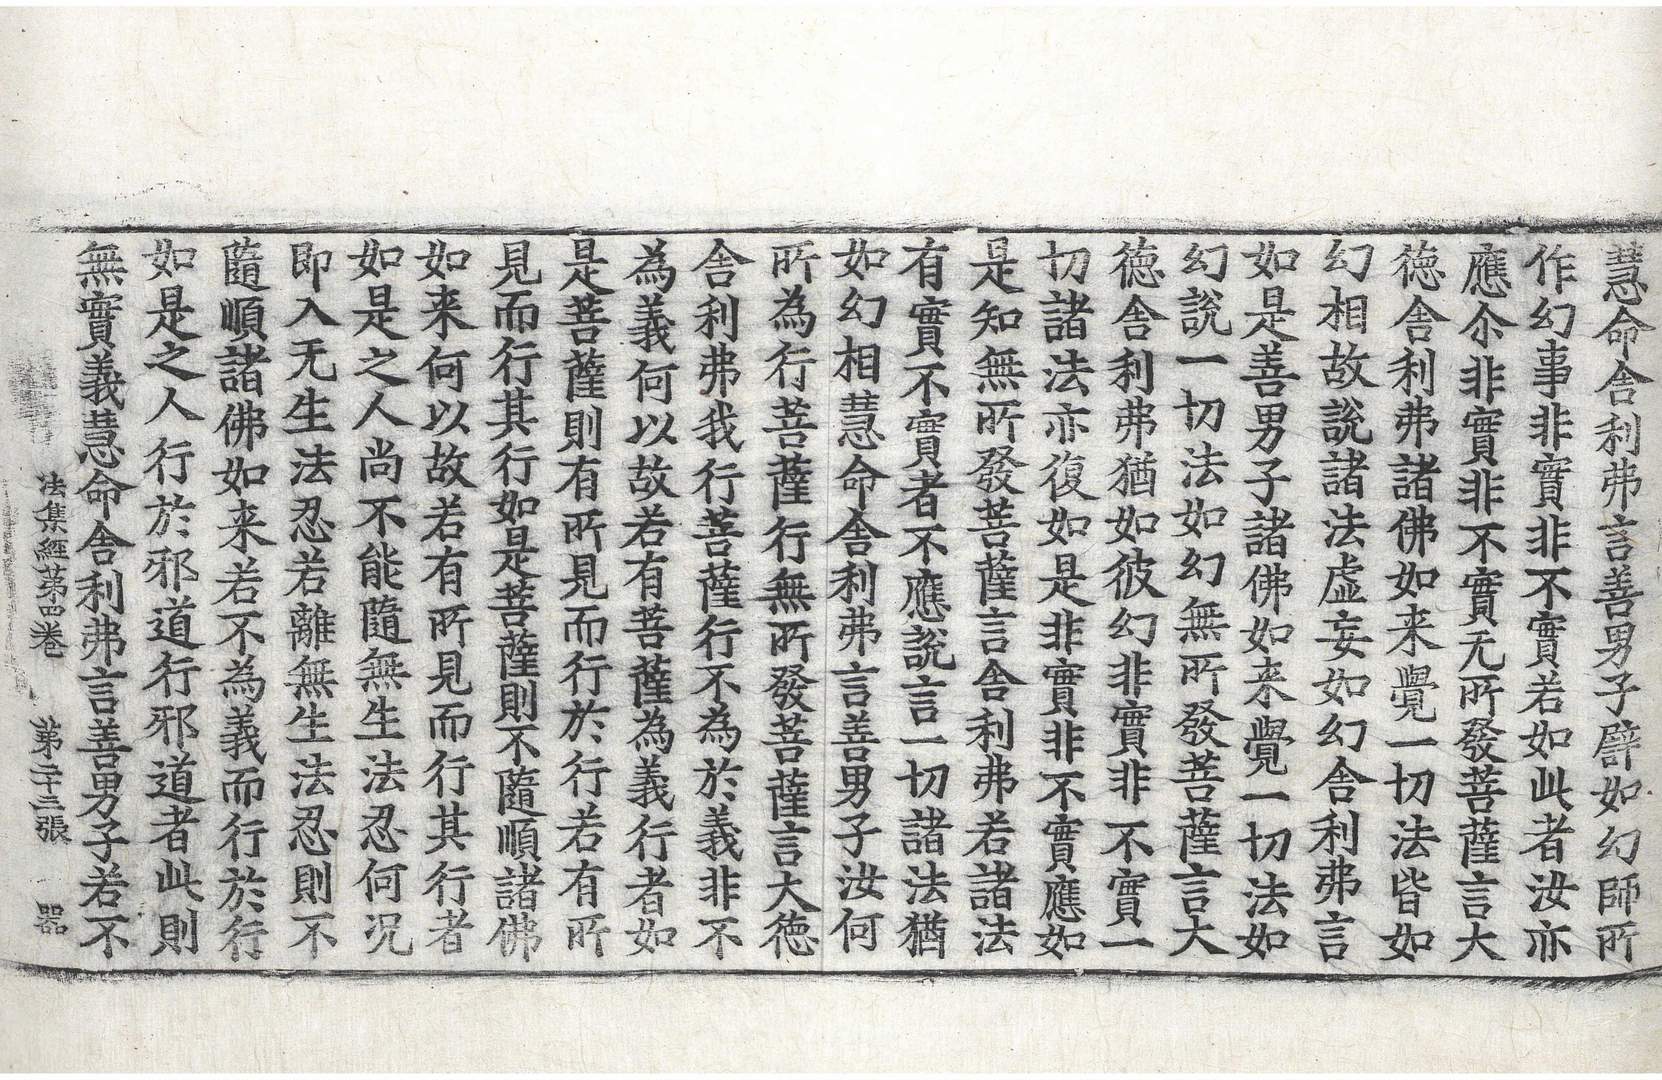 慧命舎利弗言善男子譬如幻師所
作幻事非實非不實若如此者汝亦
應尒非實非不實无所發菩薩言大
徳舎利弗諸佛如来覺一切法皆如
幻相故說諸法虛妄如幻舎利弗言
如是善男子諸佛如来覺一切法如
幻說一切法如幻無所發菩薩言大
徳舎利弗猶如彼幻非實非不實一
切諸法亦復如是非實非不實應如
是知無所發菩薩言舎利弗若諸法
有實不實者不應說言一切諸法猶
如幻相慧命舎利弗言善男子汝何
所為行菩薩行無所發菩薩言大徳
舎利弗我行菩薩行不為於義非不
為義何以故若有菩薩為義行者如
是菩薩則有所見而行於行若有所
見而行其行如是菩薩則不隨順諸佛
如来何以故若有所見而行其行者
如是之人尚不能隨無生法忍何况
即入无生法忍若離無生法忍則不
隨順諸佛如来若不為義而行於行
如是之人行於邪道行邪道者此則
無實義慧命舎利弗言善男子若不
法集經第四巻 第二十三張 器